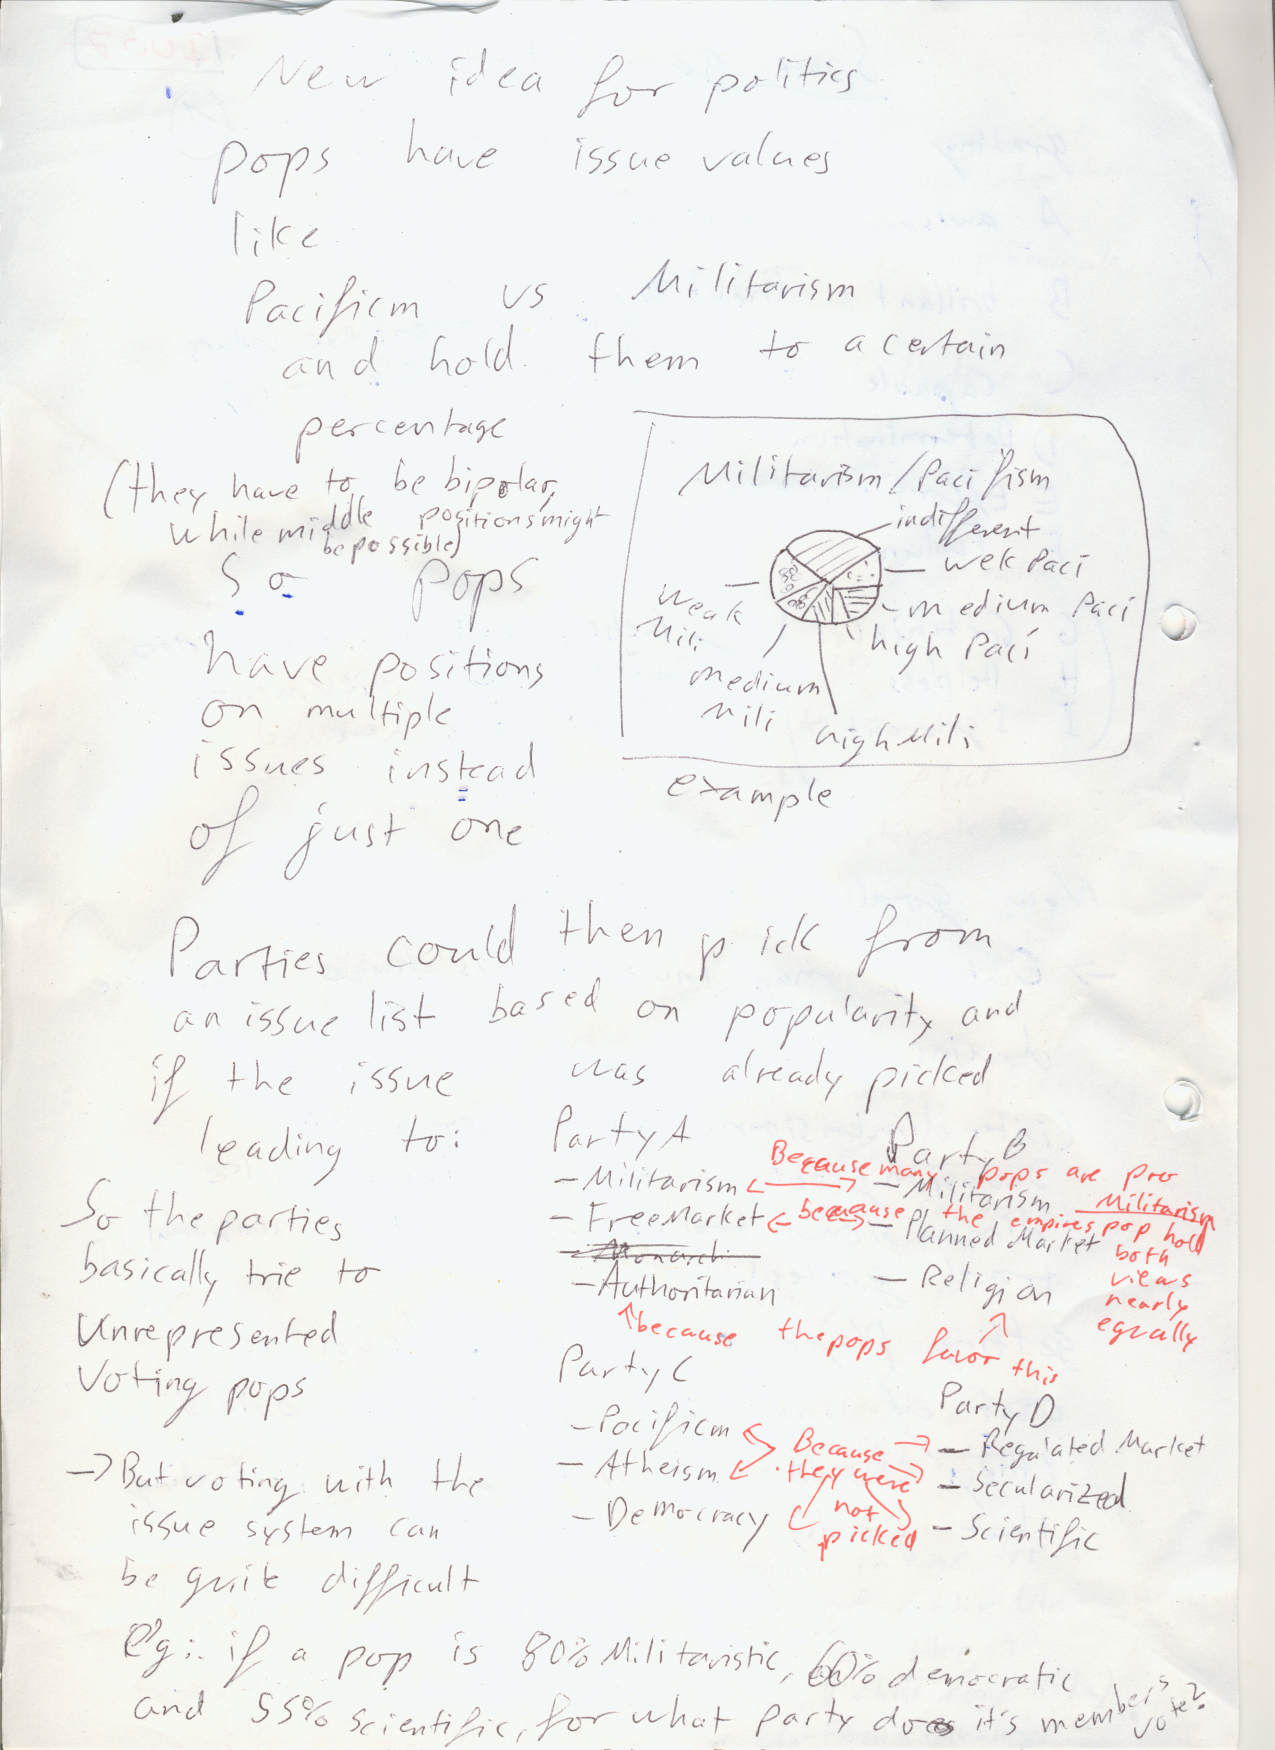 New idea for politics
pops have issue values
like
Pacificm vs Militarism
and hold them to a certain
percentage
(they have to be bipolar,
while middle positions might
be possible)
So pops
have positions
on multiple
issues instead
of just one
Militarism/Pacifism
indifferent
wek Paci
medium Paci
high Paci
high Mili
medium
Mili
Weak
Mili
example
Parties could then pick from
an issue list based on popularity and
if the issue was already picked
leading to:
So the parties
basically trie to
Unrepresented
Voting pops
Party A
- Militarism
- Free Market
- Monarch
- Authoritarian
Party B
- Militarism
- Planned Market
- Religion
Because many pops are pro
Militarism
because the empires pop hold
both
views
nearly
equally
because the pops favor this
Party C
- Pacificm
- Atheism
- Democracy
Party D
- Regulated Market
- Secularized
- Scientific
Because
they were
not
picked
-> But voting with the
issue system can
be quite difficult
e.g.: if a pop is 80% Militaristic, 60% democratic
and 55% scientific, for what party does it's members
vote?